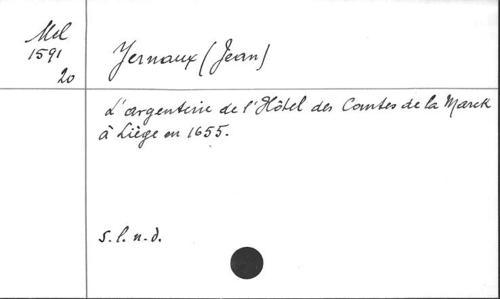 Mel
1591
20
Yernaux (Jean)
L'argenterie de l'Hôtel des Comtes de la Marck
à Liège en 1655.
s.l.n.d.